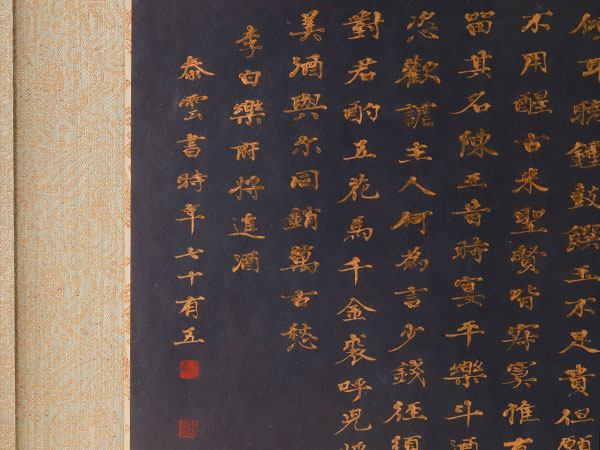 耳聽鐘鼓饌玉不足貴但願
不用醒古來聖賢皆寂寞惟有
留其名陳王昔時宴平樂斗酒
恣歡謔主人何為言少錢徑須
對君酌五花馬千金裘呼兒將
美酒與尔同銷萬古愁
李白樂府將進酒
泰雲書時年七十有五